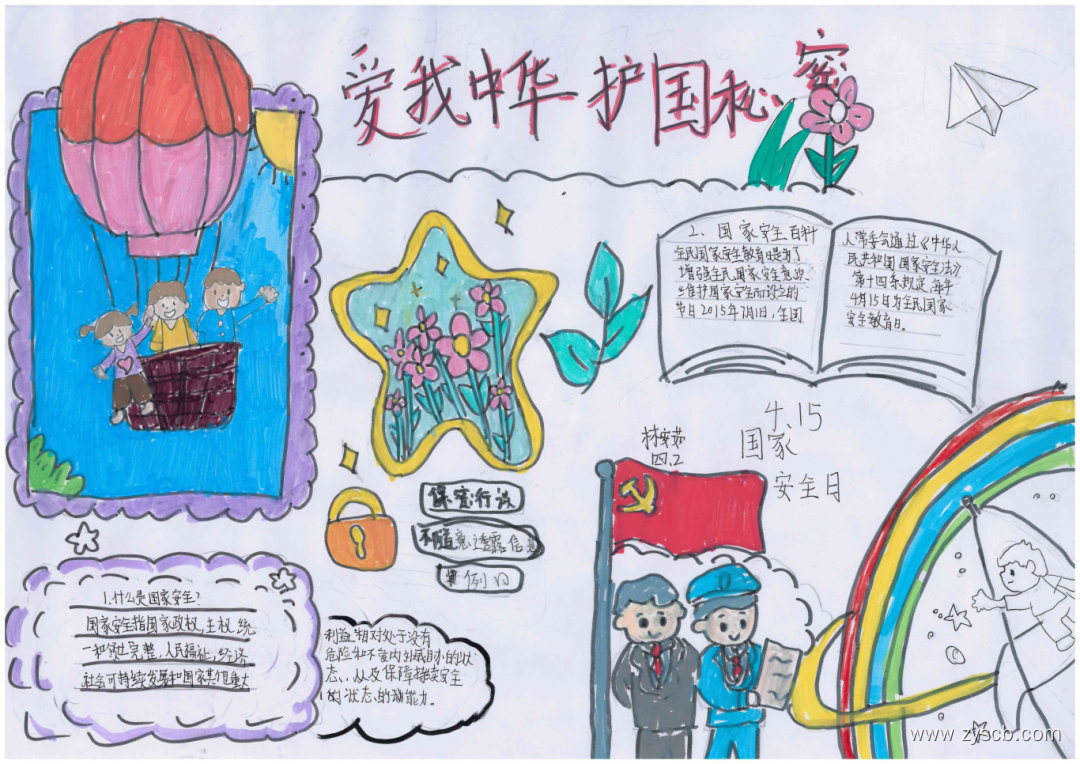 爱我中华 护国秘密
2、国家安全百科
全民国家安全教育日是为了
增强全民国家安全意识
维护国家安全而设立的
节日2015年7月1日,全国
人常委会通过《中华人
民共和国国家安全法》
第十四条规定,每年
4月15日为全民国家
安全教育日。
4.15
国家
安全日
四.2
保密行
不随意透露信息
例如
1.什么是国家安全?
国家安全指国家政权,主权,统
一和领土完整,人民福祉,经济
社会可持续发展和国家其他重大
利益相对处于没有
危险和不受内外威胁的状
态,以及保障持续安全
的状态的能力。
www.zyscb.com